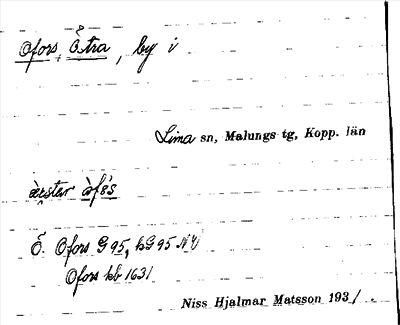 Ofors, Östra, by i
Lima sn, Malungs tg, Kopp. län
Ö. Ofors G 95, kG 95 NV
Ofors kb 1631
Niss Hjalmar Matsson 1931.